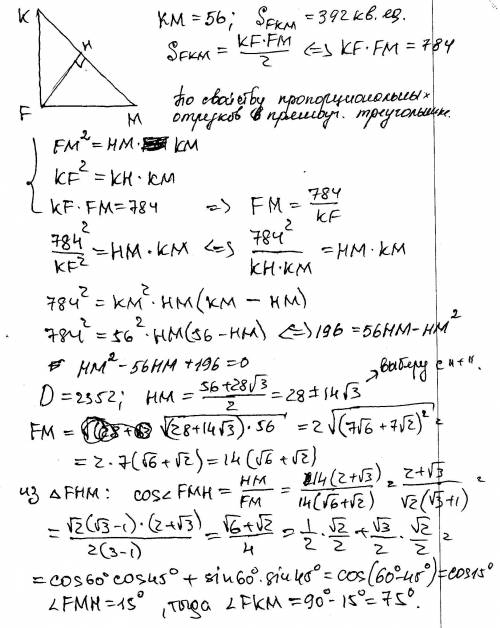 K
H
F
M
KM = 56; S_FKM = 392 кв. ед.
S_FKM = KF·FM / 2 <=> KF·FM = 784
По свойству пропорциональных
отрезков в прямоуг. треугольнике.
{ FM² = HM · KM
KF² = KH · KM
KF · FM = 784 => FM = 784 / KF
784² / KF² = HM · KM <=> 784² / KH·KM = HM · KM
784² = KM² · HM (KM − HM)
784² = 56² · HM (56 − HM) <=> 196 = 56HM − HM²
HM² − 56HM + 196 = 0
D = 2352; HM = 56 + 28√3 / 2 = 28 ± 14√3 → выберу с "+".
FM = √(28 + 14√3) · 56 = 2√(7√6 + 7√2)² =
= 2 · 7(√6 + √2) = 14(√6 + √2)
из △FHM: cos∠FMH = HM / FM = 14(2+√3) / 14(√6+√2) = 2+√3 / √2(√3+1) =
= √2(√3−1)·(2+√3) / 2(3−1) = √6+√2 / 4 = 1/2 · √2/2 + √3/2 · √2/2 =
= cos60° cos45° + sin60° · sin45° = cos(60°−45°) = cos15°
∠FMH = 15°, тогда ∠FKM = 90° − 15° = 75°.